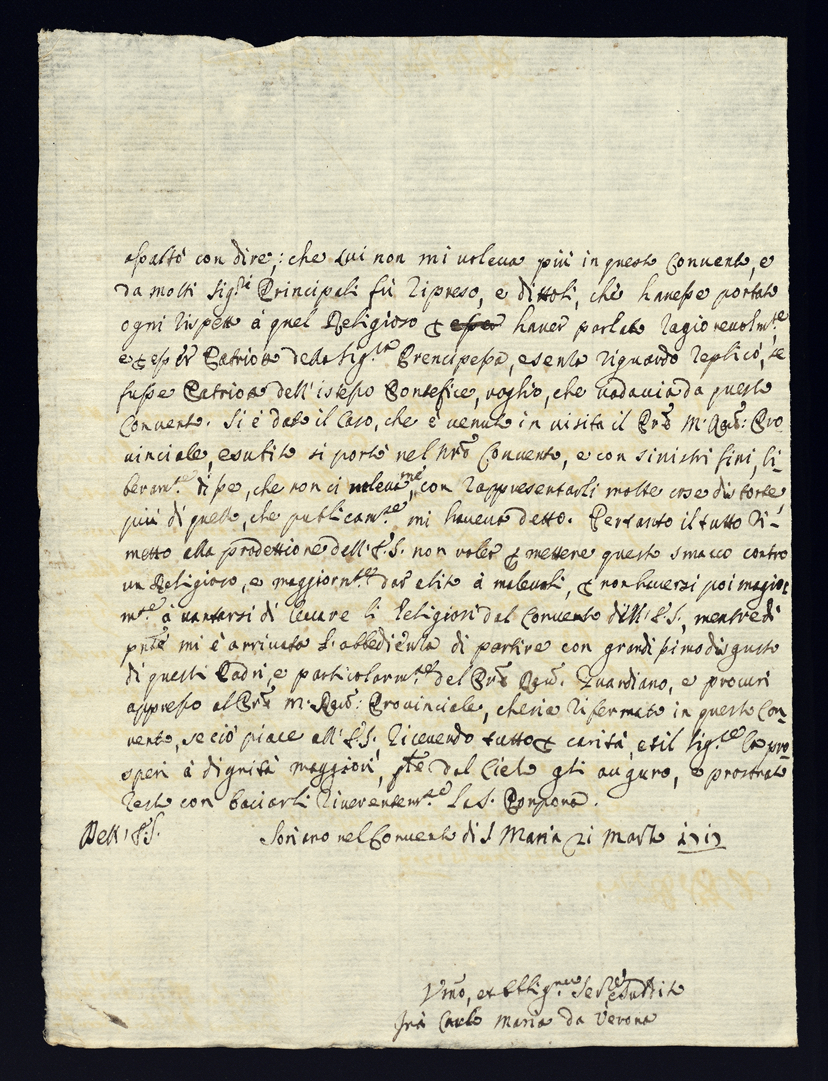 aspaltò con dire,: che Lui non mi voleva più in questo Convento, e
da molti Sig.ri Principali fù ripreso, e dittoli, che havesse portato
ogni rispetto à quel Religioso haver parlato ragionevolm.te
e esser Patriota della Sig.ra Prencipessa, e senza riguardo replicò, se
fusse Patriota dell'istesso Pontefice, voglio, che vada via da questo
Convento. Si è dato il Caso, che è venuto in visita il P.re M. R.do: Pro
vinciale, e subito si portò nel nr̃o Convento, e con sinistri fini, li
beram.te disse, che non ci voleva me, con rappresentarli molte cose distorte
più di quelle, che publicam.te mi haveva detto. Pertanto il tutto ri-
metto alla prodettione dell' mettere questo smacco contro
un Religioso, e maggiorm.te dar alito à malevoli, non haversi poi
m.te à vantarsi di levare li Religiosi dal Convento dell' mentre di
pn̄te mi è arrivata l'obbedienza di partire con grandissimo disgusto
di questi Padri, e particolarm.te del P.re R.do Guardiano, e procuri
appresso al P.re M. R.do: Provinciale, che sia rifermato in questo Con-
vento, se ciò piace all' ricevendo tutto carità, e si il Sig.re La pro
speri à dignità maggiori, dal Cielo gli auguro, e prostrato
resto con baciarli riverentem.te la S. Porpora.
Dell'
Soriano nel Convento di S Maria 21 Marzo 1717
Um̃o, et Obblig.mo Ser.re e suddito
frà Carlo Maria da Verona